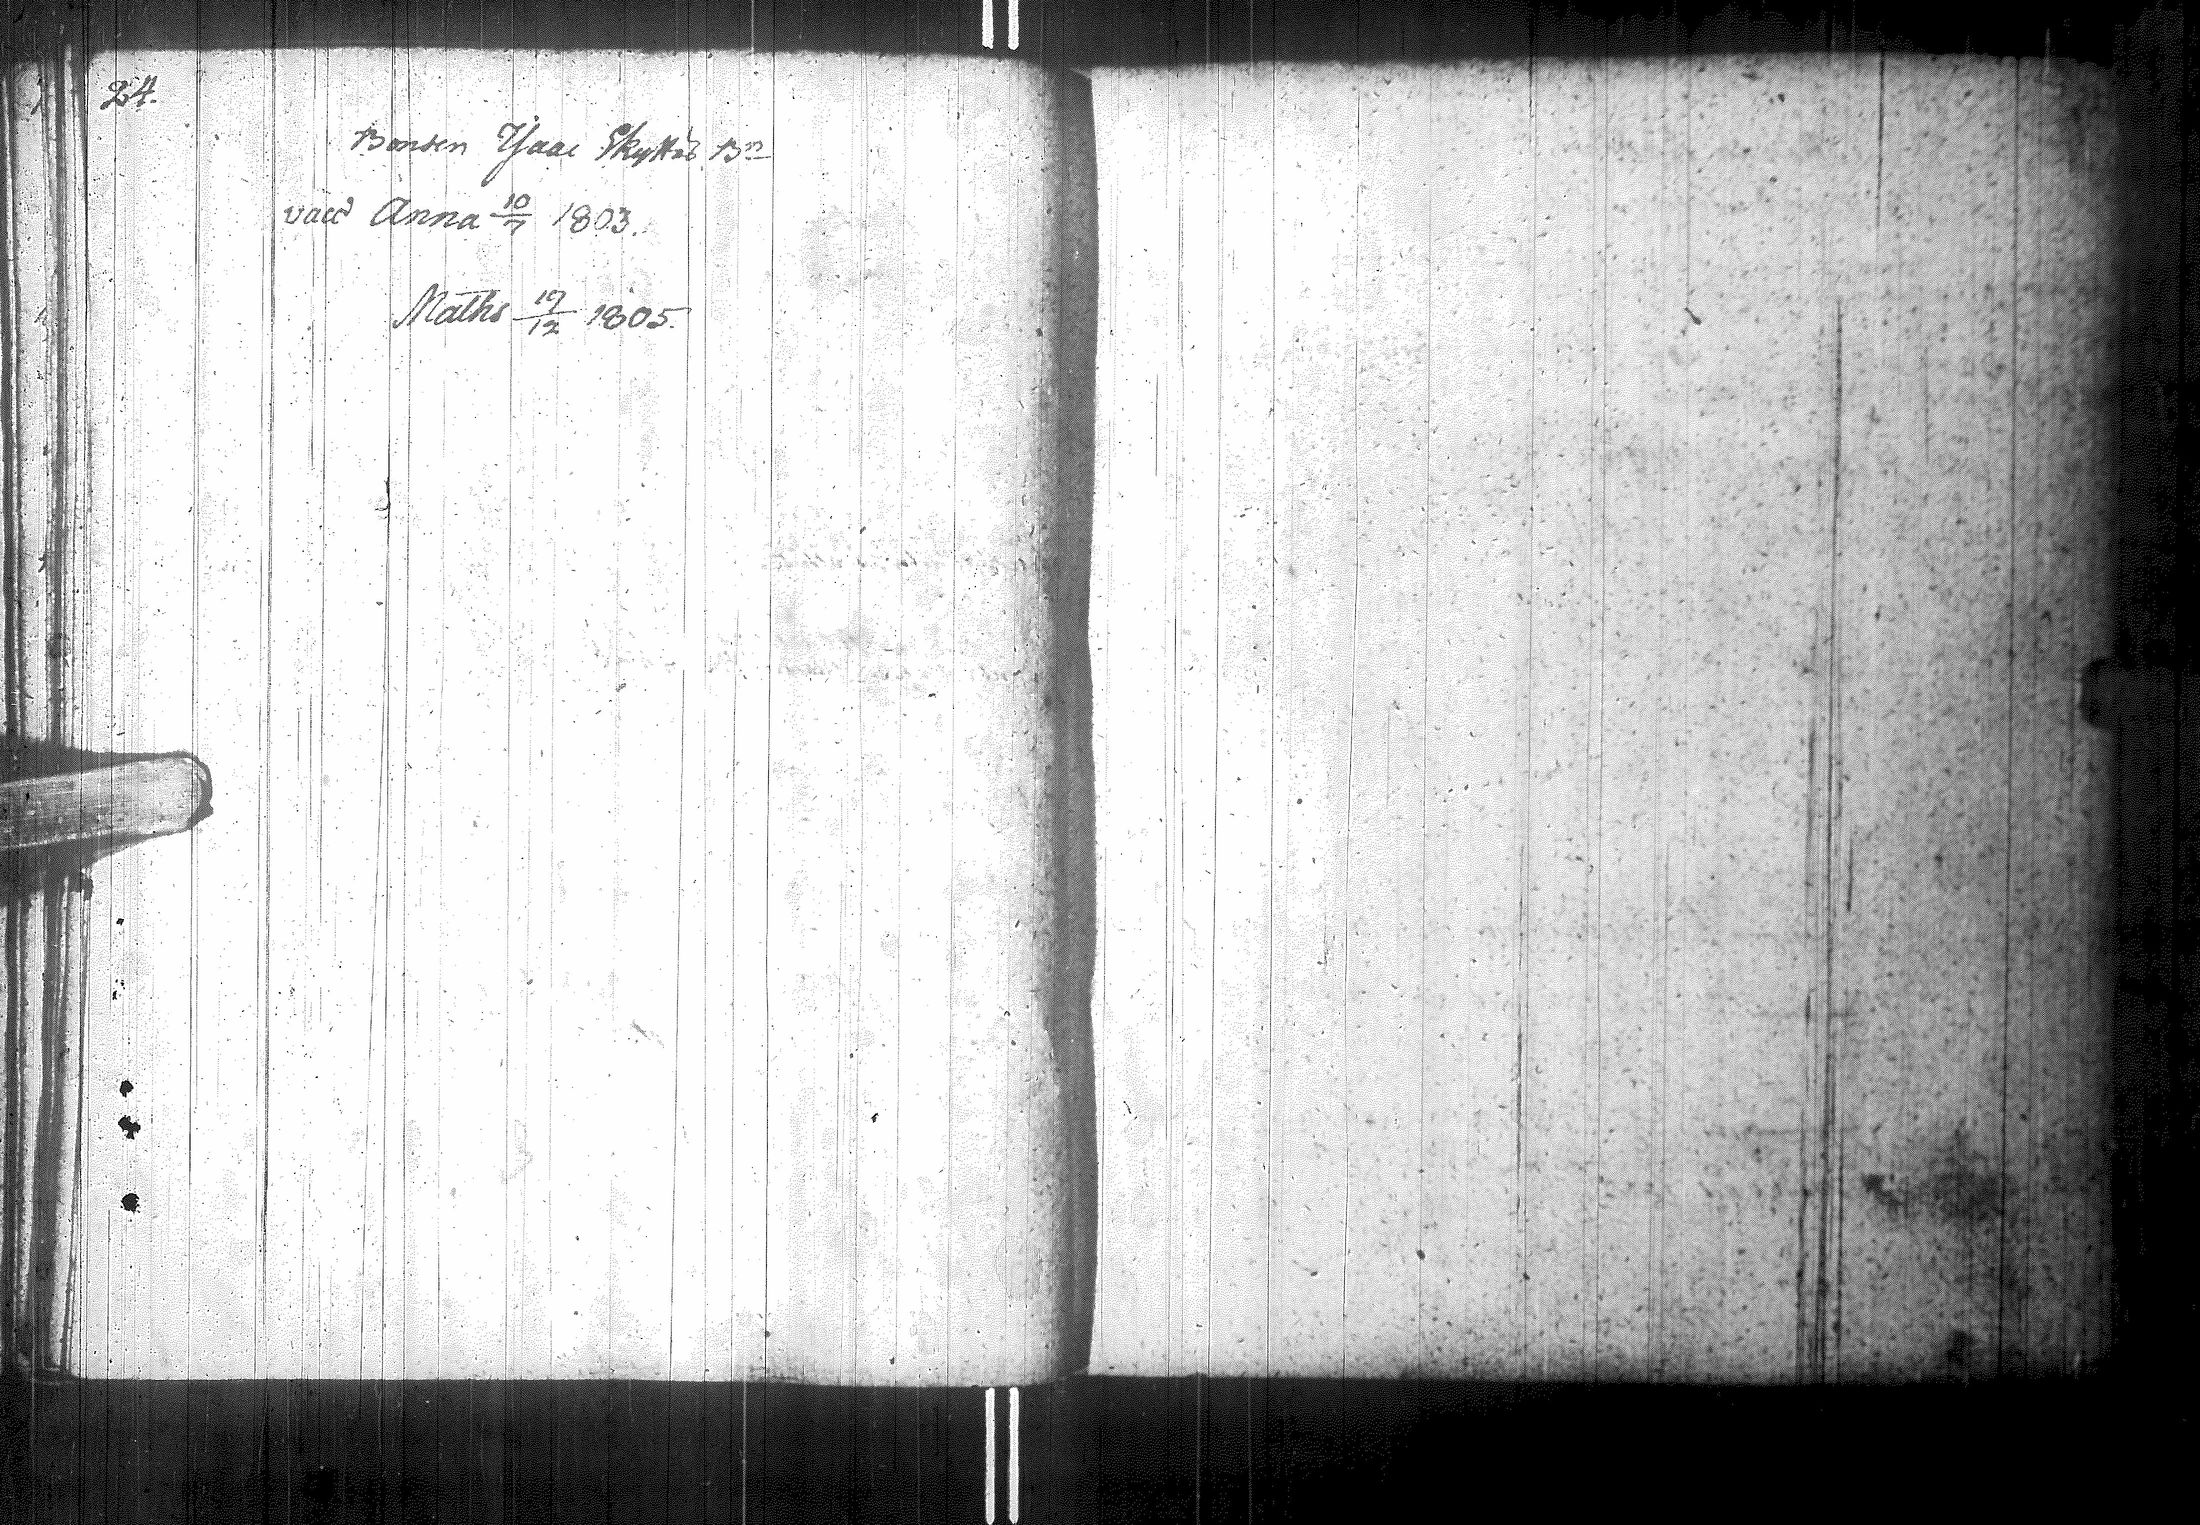 24.
Bonden Isaac Skyttes Bn
vacc Anna 10/7 1803.
Maths 19/12 1805.